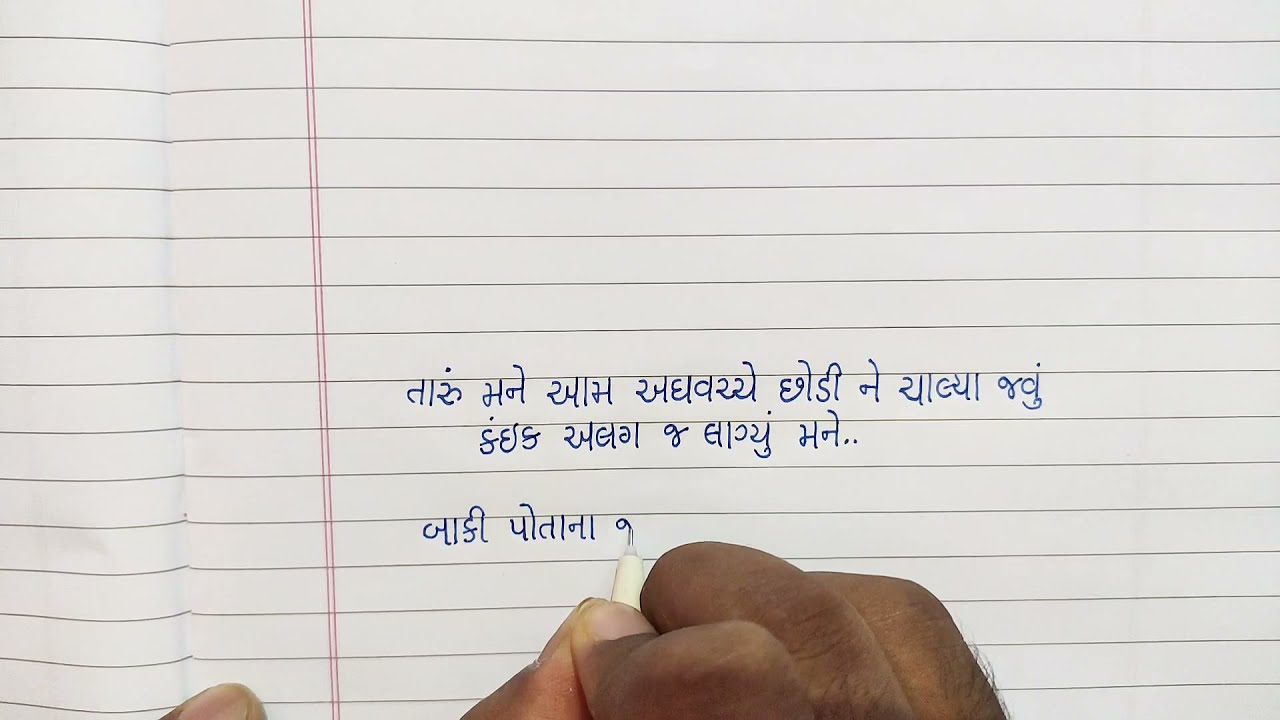 તારું મને આમ અધવચ્ચે છોડી ને ચાલ્યા જવું
કંઇક અલગ જ લાગ્યું મને..
બાકી પોતાના